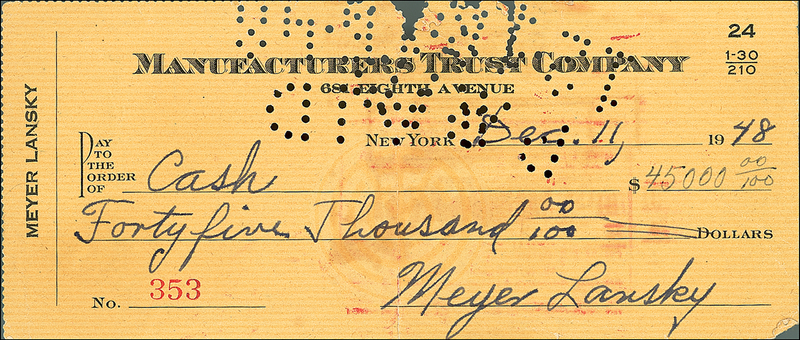 24
MANUFACTURERS TRUST COMPANY
1-30
210
681 EIGHTH AVENUE
MEYER LANSKY
NEW YORK Dec. 11, 1948
PAY TO THE ORDER OF Cash $ 45000 00/100
Forty five Thousand 00/100 DOLLARS
No. 353
Meyer Lansky